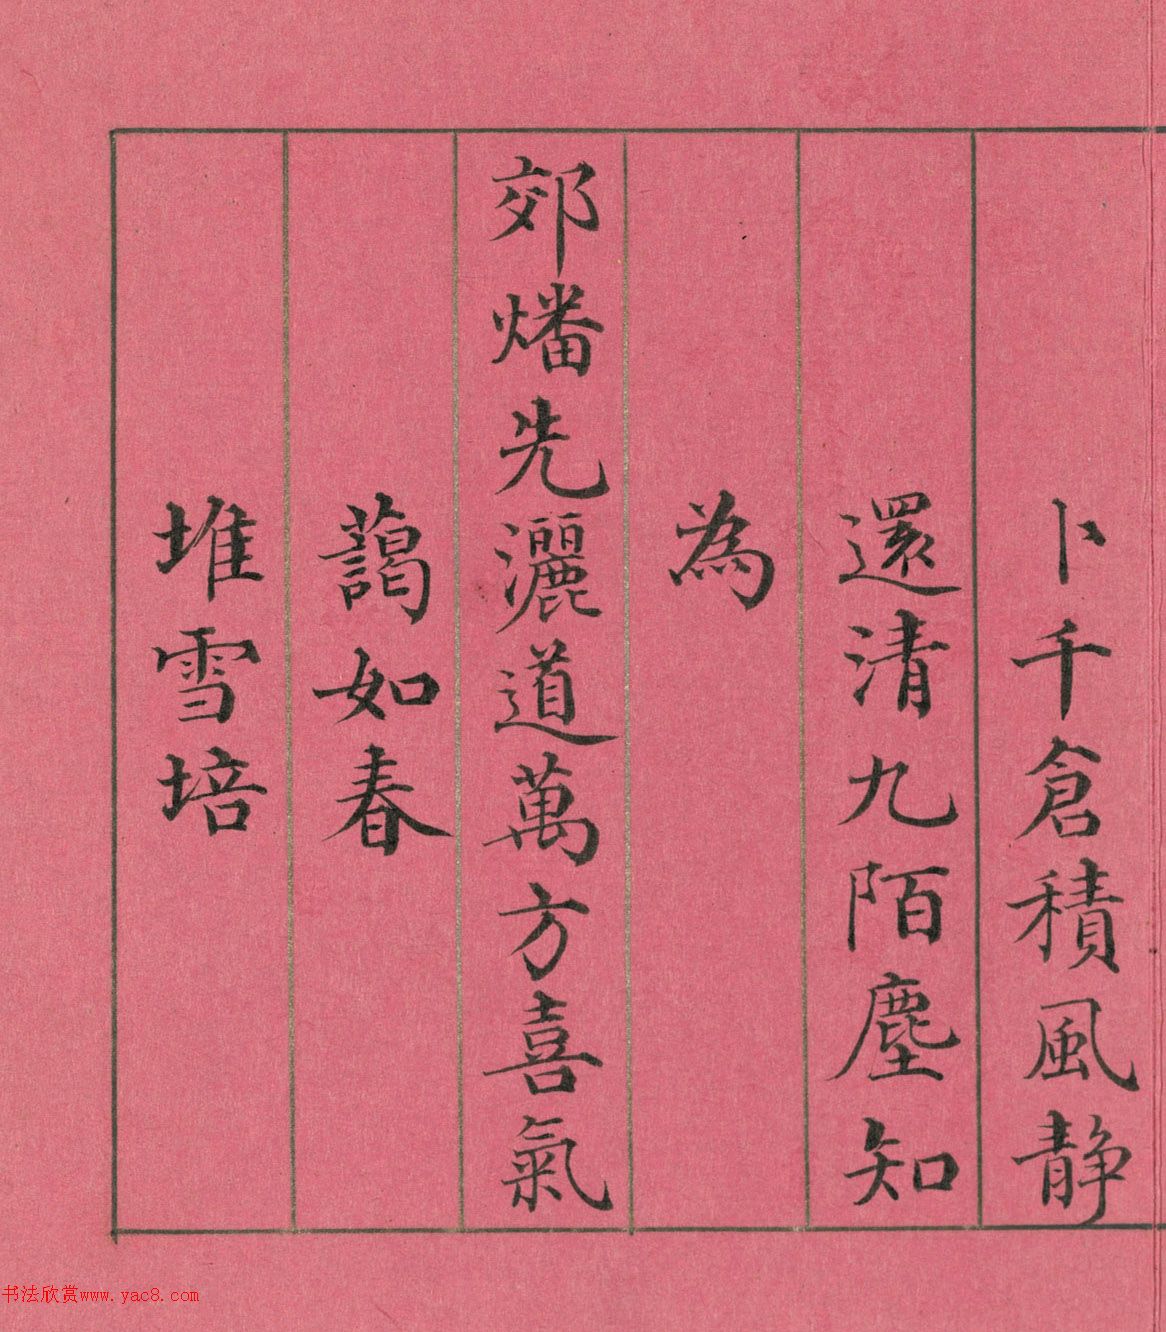 卜千倉積風静
還清九陌塵知
為
郊燔先灑道萬方喜氣
藹如春
堆雪培
书法欣赏www.yac8.com